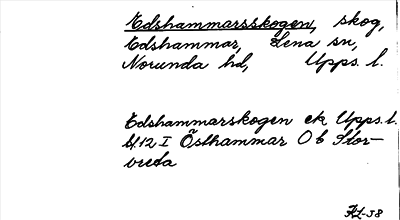 Edshammarsskogen, skog,
Edshammar, Lena sn,
Norunda hd, Upps. l.
Edshammarskogen ek Upps. l.
bl. 112 I Östhammar O b Stor-
vreta
HL-38